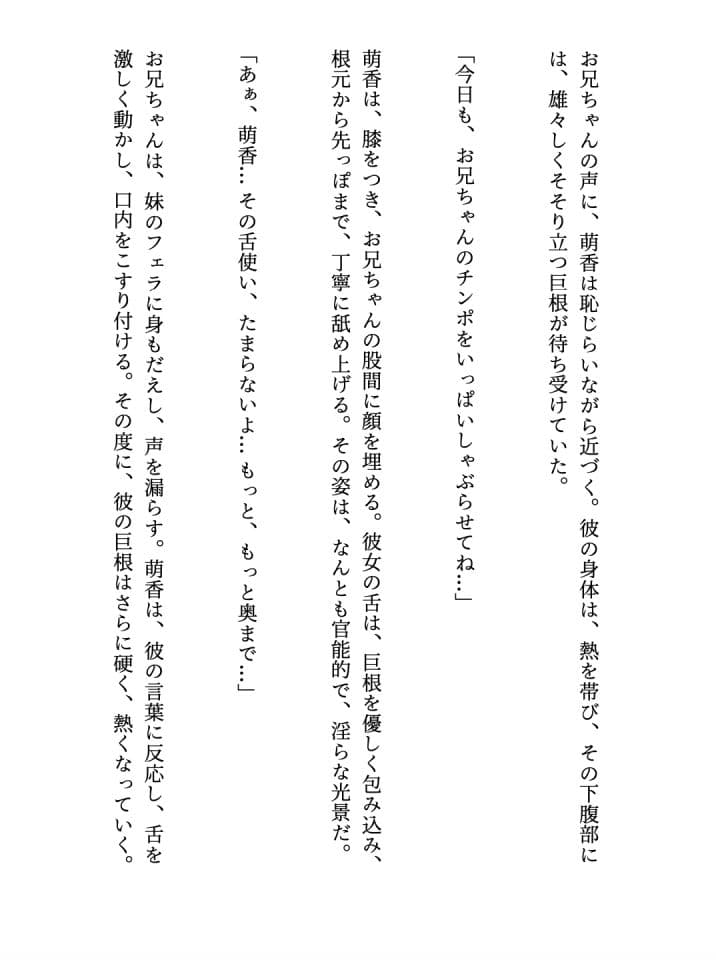 お兄ちゃんの声に、萌香は恥じらいながら近づく。彼の身体は、熱を帯び、その下腹部に
は、雄々しくそそり立つ巨根が待ち受けていた。
「今日も、お兄ちゃんのチンポをいっぱいしゃぶらせてね…」
萌香は、膝をつき、お兄ちゃんの股間に顔を埋める。彼女の舌は、巨根を優しく包み込み、
根元から先っぽまで、丁寧に舐め上げる。その姿は、なんとも官能的で、淫らな光景だ。
「あぁ、萌香… その舌使い、たまらないよ… もっと、もっと奥まで…」
お兄ちゃんは、妹のフェラに身もだえし、声を漏らす。萌香は、彼の言葉に反応し、舌を
激しく動かし、口内をこすり付ける。その度に、彼の巨根はさらに硬く、熱くなっていく。